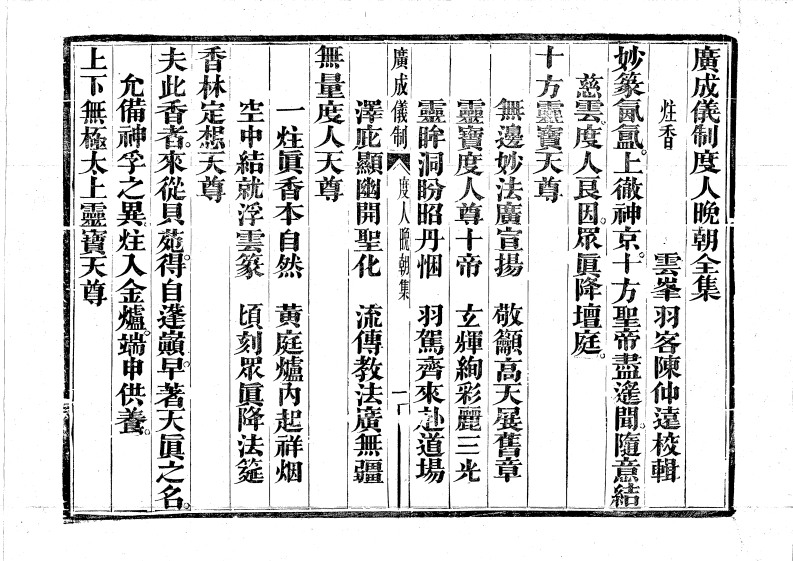 廣成儀制度人晚朝全集
炷香　雲峯羽客陳仲遠校輯
妙篆氤氳。上徹神京。十方聖帝盡遙聞。隨意結
慈雲。度人良因。眾眞降壇庭。
十方靈寶天尊
無邊妙法廣宣揚　敬籲高天展舊章
靈寶度人尊十帝　玄輝絢彩麗三光
靈眸洞盼昭丹悃　羽駕齊來赴道場
廣成儀制　度人晚朝集　一
澤庇顯幽開聖化　流傳教法廣無疆
無量度人天尊
一炷眞香本自然　黃庭爐內起祥烟
空中結就浮雲篆　頃刻眾眞降法筵
香林定想天尊
夫此香者。來從貝苑。得自蓬巔。早著天眞之名。
允備神孚之異。炷入金爐。端申供養。
上下無極太上靈寶天尊